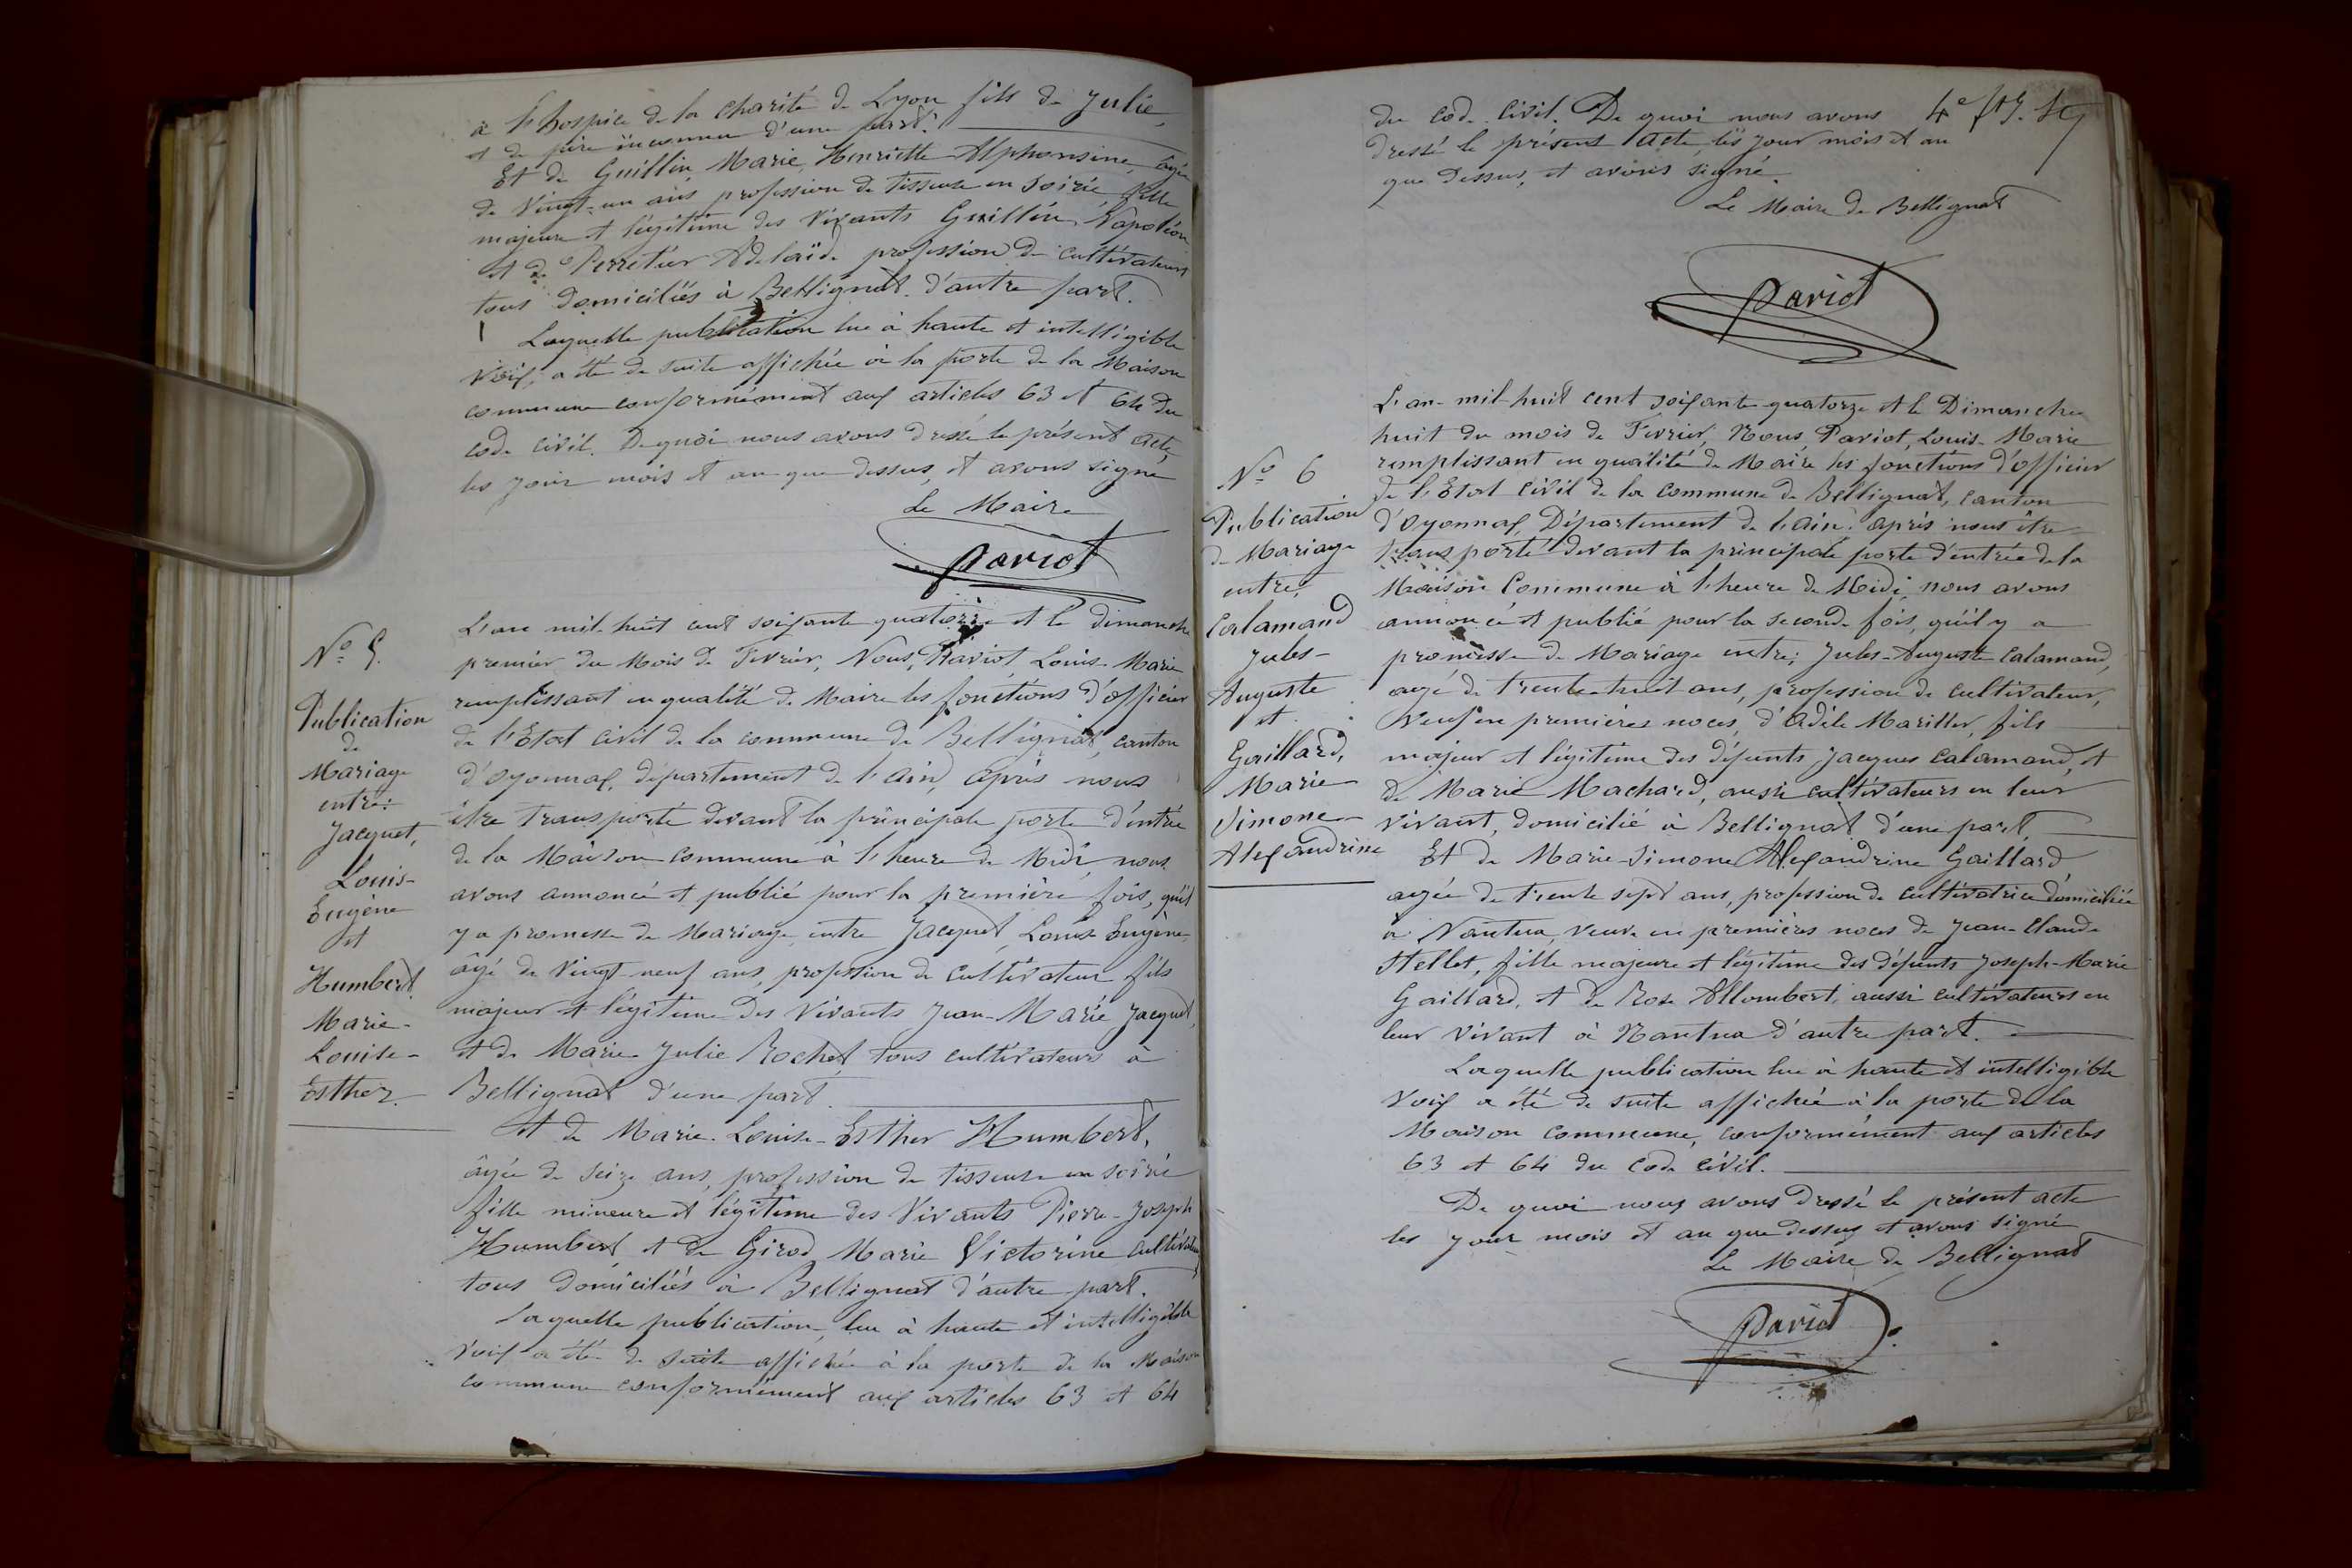 à l'hospice de la charité de Lyon fils de Julie,
et de père inconnu d'une part.
Et de Guillin, Marie, Henriette Alphonsine, âgée
de Vingt-un ans profession de tisseuse en soirie fille
majeure et légitime des Vivants Guillin, Napoléon
et de Perretier Adelaïde profession de cultivateurs
tous domiciliés à Bellignat d'autre part.
Laquelle publication lue à haute et intelligible
Voix, a été de suite affichée à la porte de la Maison
commune conformément aux articles 63 et 64 du
code civil. De quoi nous avons dressé le présent acte,
les jour mois et an que dessus, et avons signé
Le Maire
Pariot
No 5.
Publication
de
Mariage
entre:
Jacquet,
Louis-
Eugène
et
Humbert
Marie-
Louise-
Esther
L'an mil-huit cent soixante quatorze et le dimanche
premier du Mois de Fevrier, Nous, Pariot, Louis-Marie
remplissant en qualité de Maire les fonctions d'officier
de l'Etat civil de la commune de Bellignat, canton
d'Oyonnax, département de l'ain, après nous
être transporté devant la principale porte d'entrée
de la Maison commune à l'heure de Midi, nous
avons annoncé et publié pour la première fois, qu'il
y a promesse de Mariage entre Jacquet, Louis Eugène,
âgé de Vingt-neuf ans, profession de cultivateur fils
majeur et légitime des Vivants Jean-Marie Jacquet,
et de Marie Julie Rochet, tous cultivateurs à
Bellignat d'une part.
et de Marie-Louise-Esther Humbert,
âgée de seize ans, profession de tisseuse en soirie
fille mineure et légitime des Vivants Pierre-Joseph
Humbert, et de Girod Marie Victorine cultivateurs
tous domiciliés à Bellignat d'autre part.
Laquelle publication, lue à haute et intelligible
Voix a été de suite affichée à la porte de la Maison
commune conformément aux articles 63 et 64
du code civil. De quoi nous avons
dressé le présent acte, les jour mois et an
que dessus, et avons signé.
4e
Le Maire de Bellignat
Pariot
No 6
Publication
de Mariage
entre,
Calamand
Jules-
Auguste
et
Gaillard,
Marie
Simone-
Alexandrine
L'an-mil-huit cent soixante quatorze et le Dimanche
huit du mois de Fevrier, Nous Pariot, Louis-Marie
remplissant en qualité de Maire les fonctions d'officier
de l'Etat civil de la commune de Bellignat, canton
d'Oyonnax, Département de l'ain. après nous être
transporté devant la principale porte d'entrée de la
Maison Commune à l'heure de Midi, nous avons
annoncé et publié pour la seconde fois, qu'il y a
promesse de Mariage entre; Jules-Auguste Calamand,
agé de trente-huit ans, profession de cultivateur,
Veuf en premières noces, d'Adèle Mariller, fils
majeur et légitime des défunts Jacques Calamand, et
de Marie Machard, aussi cultivateurs en leur
vivant, domicilié à Bellignat d'une part,
Et de Marie-Simone Alexandrine Gaillard
agée de trente sept ans, profession de cultivatrice domiciliée
à Nantua, veuve en premières noces de Jean-Claude
Hellet, fille majeure et légitime des défunts Joseph-Marie
Gaillard, et de Rose Allombert, aussi cultivateurs en
leur Vivant à Nantua d'autre part.
Laquelle publication lue à haute et intelligible
Voix a été de suite affichée à la porte de la
Maison commune, conformément aux articles
63 et 64 du code civil.
De quoi nous avons dressé le présent acte
les jour mois et an que dessus et avons signé
Le Maire de Bellignat
Pariot